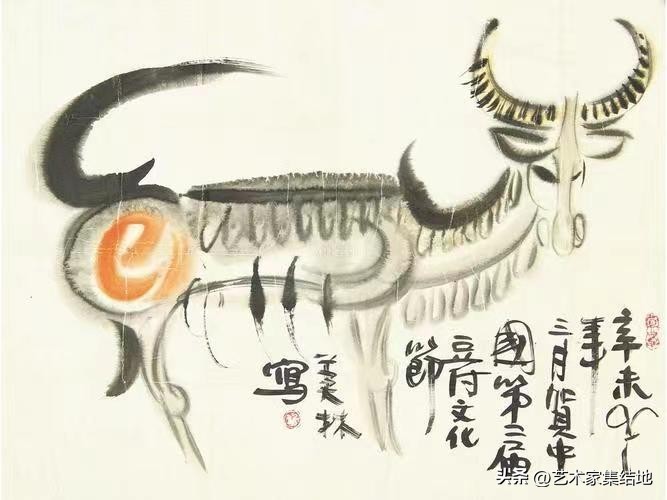 辛未
年
三月賀中
國第二届
豆腐文化
節
美林
寫
头条 @艺术家集结地